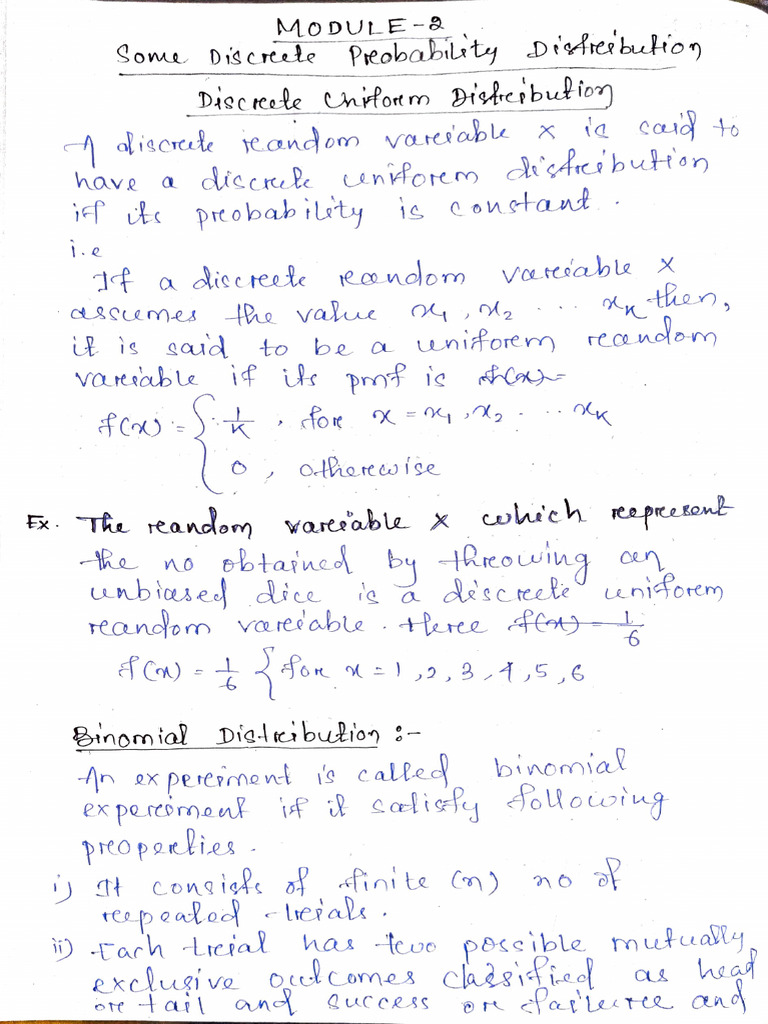 MODULE-2
Some Discrete Probability Distribution
Discrete Uniform Distribution
A discrete random variable x is said to
have a discrete uniform distribution
if its probability is constant.
i.e
If a discrete random variable x
assumes the value x₁, x₂ ... xₖ then,
it is said to be a uniform random
variable if its pmf is f(x)=
f(x) = { 1/K , for x = x₁, x₂ ... xₖ
0 , otherwise
Ex. The random variable x which represent
the no obtained by throwing an
unbiased dice is a discrete uniform
random variable. Here f(x) = 1/6
f(x) = 1/6 { for x = 1, 2, 3, 4, 5, 6
Binomial Distribution :-
An experiment is called binomial
experiment if it satisfy following
properties.
i) It consists of finite (n) no of
repeated trials.
ii) Each trial has two possible mutually
exclusive outcomes classified as head
or tail and success or failure and